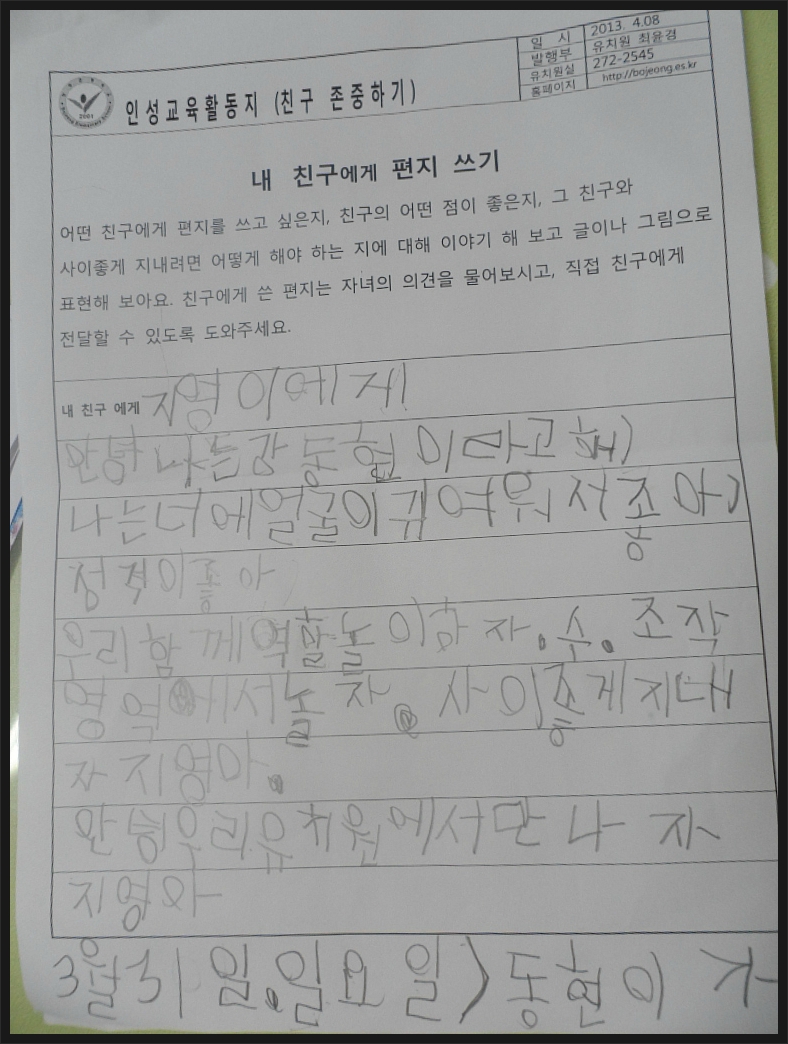 일 시 2013. 4.08
발행부 유치원 최윤경
유치원실 272-2545
홈페이지 http://bojeong.es.kr
인성교육활동지 (친구 존중하기)
내 친구에게 편지 쓰기
어떤 친구에게 편지를 쓰고 싶은지, 친구의 어떤 점이 좋은지, 그 친구와
사이좋게 지내려면 어떻게 해야 하는 지에 대해 이야기 해 보고 글이나 그림으로
표현해 보아요. 친구에게 쓴 편지는 자녀의 의견을 물어보시고, 직접 친구에게
전달할 수 있도록 도와주세요.
내 친구 에게 지영이에게
안녕 나는강동현이라고해)
나는너에얼굴이귀여워서좋아)
성격이좋아
우리함께역할놀이하자.수.조작
영역에서놀자. 사이좋게지내
자 지영아.
안녕우리유치원에서만나자
지영아
3월31일.일요일>동현이가